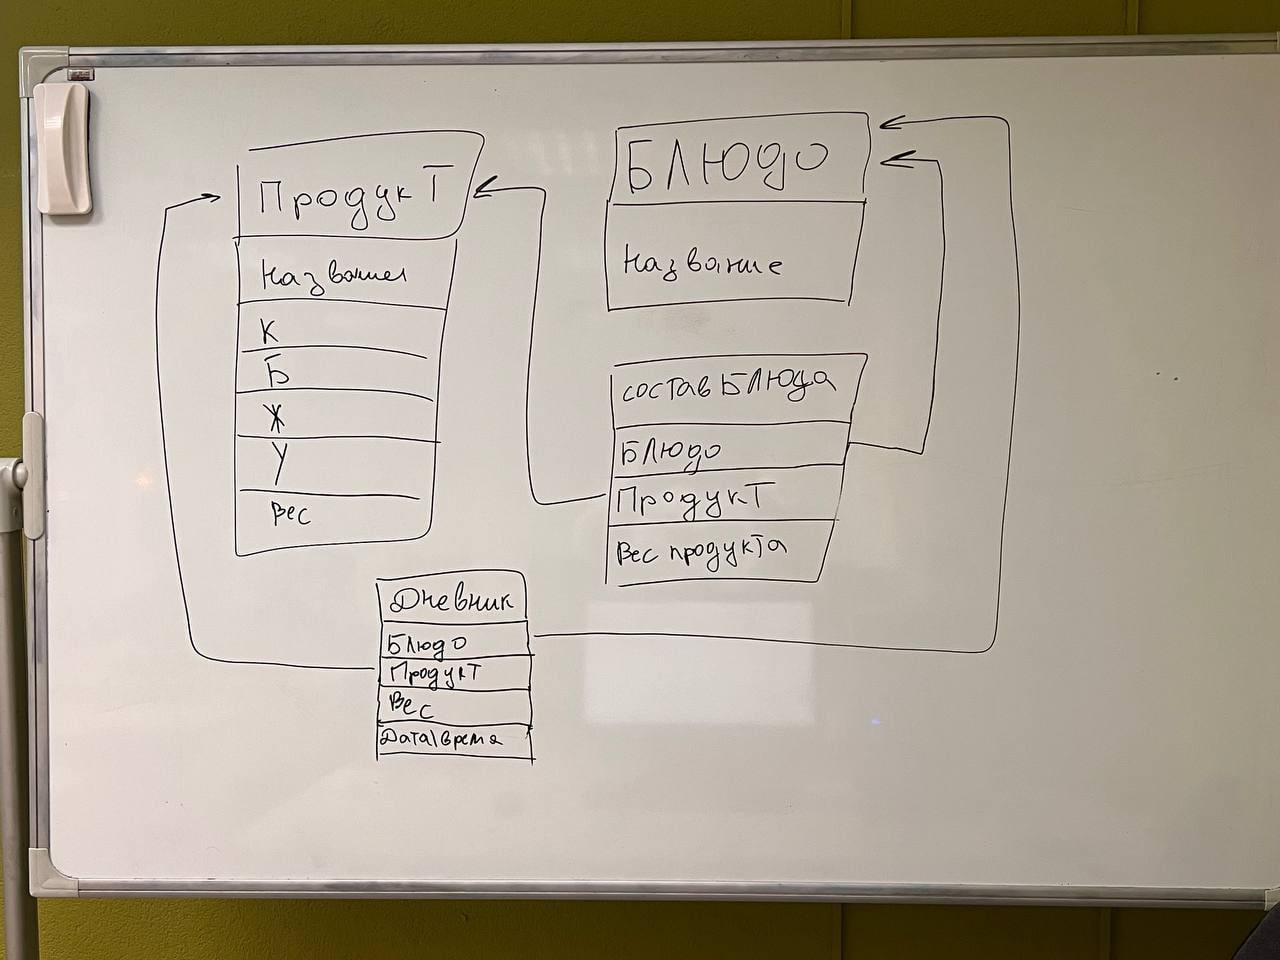 Продукт
Название
К
Б
Ж
У
Вес
Блюдо
Название
состав Блюда
Блюдо
Продукт
Вес продукта
Дневник
Блюдо
Продукт
Вес
Дата\время